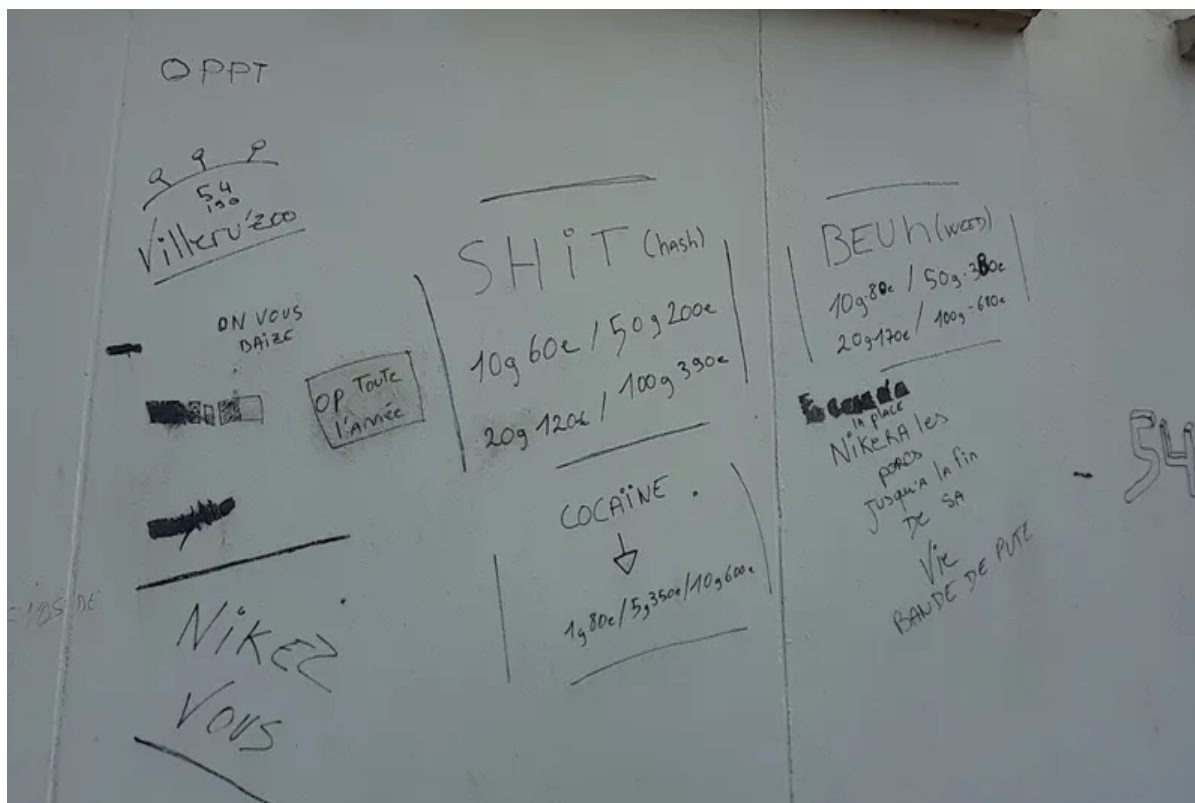 OPPT
54
190
Villeru'zoo
ON VOUS
BAiZE
OP TOUTE
l'Année
NiKEZ
VOUS
SHiT (hash)
10g 60e / 50g 200e
20g 120e / 100g 390e
COCAÏNE
1g 80e / 5g 350e / 10g 600e
BEUh (WEED)
10g-80e / 50g-380e
20g-170e / 100g-680e
la place
NikeRA les
porcs
jusqu'a la fin
DE SA
Vie
BANDE DE PUTE
- 54